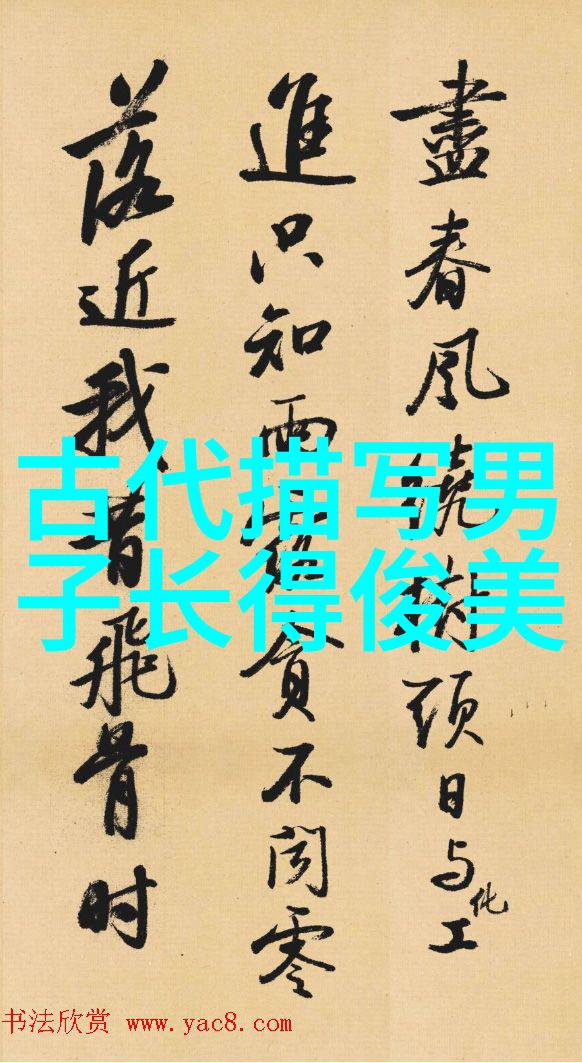 盡春風繞樹頭日与化工
進只知雨露貪不闻零
落近我昔飛骨时
古代描写男
子长得俊美
书法欣赏 www.yac8.com